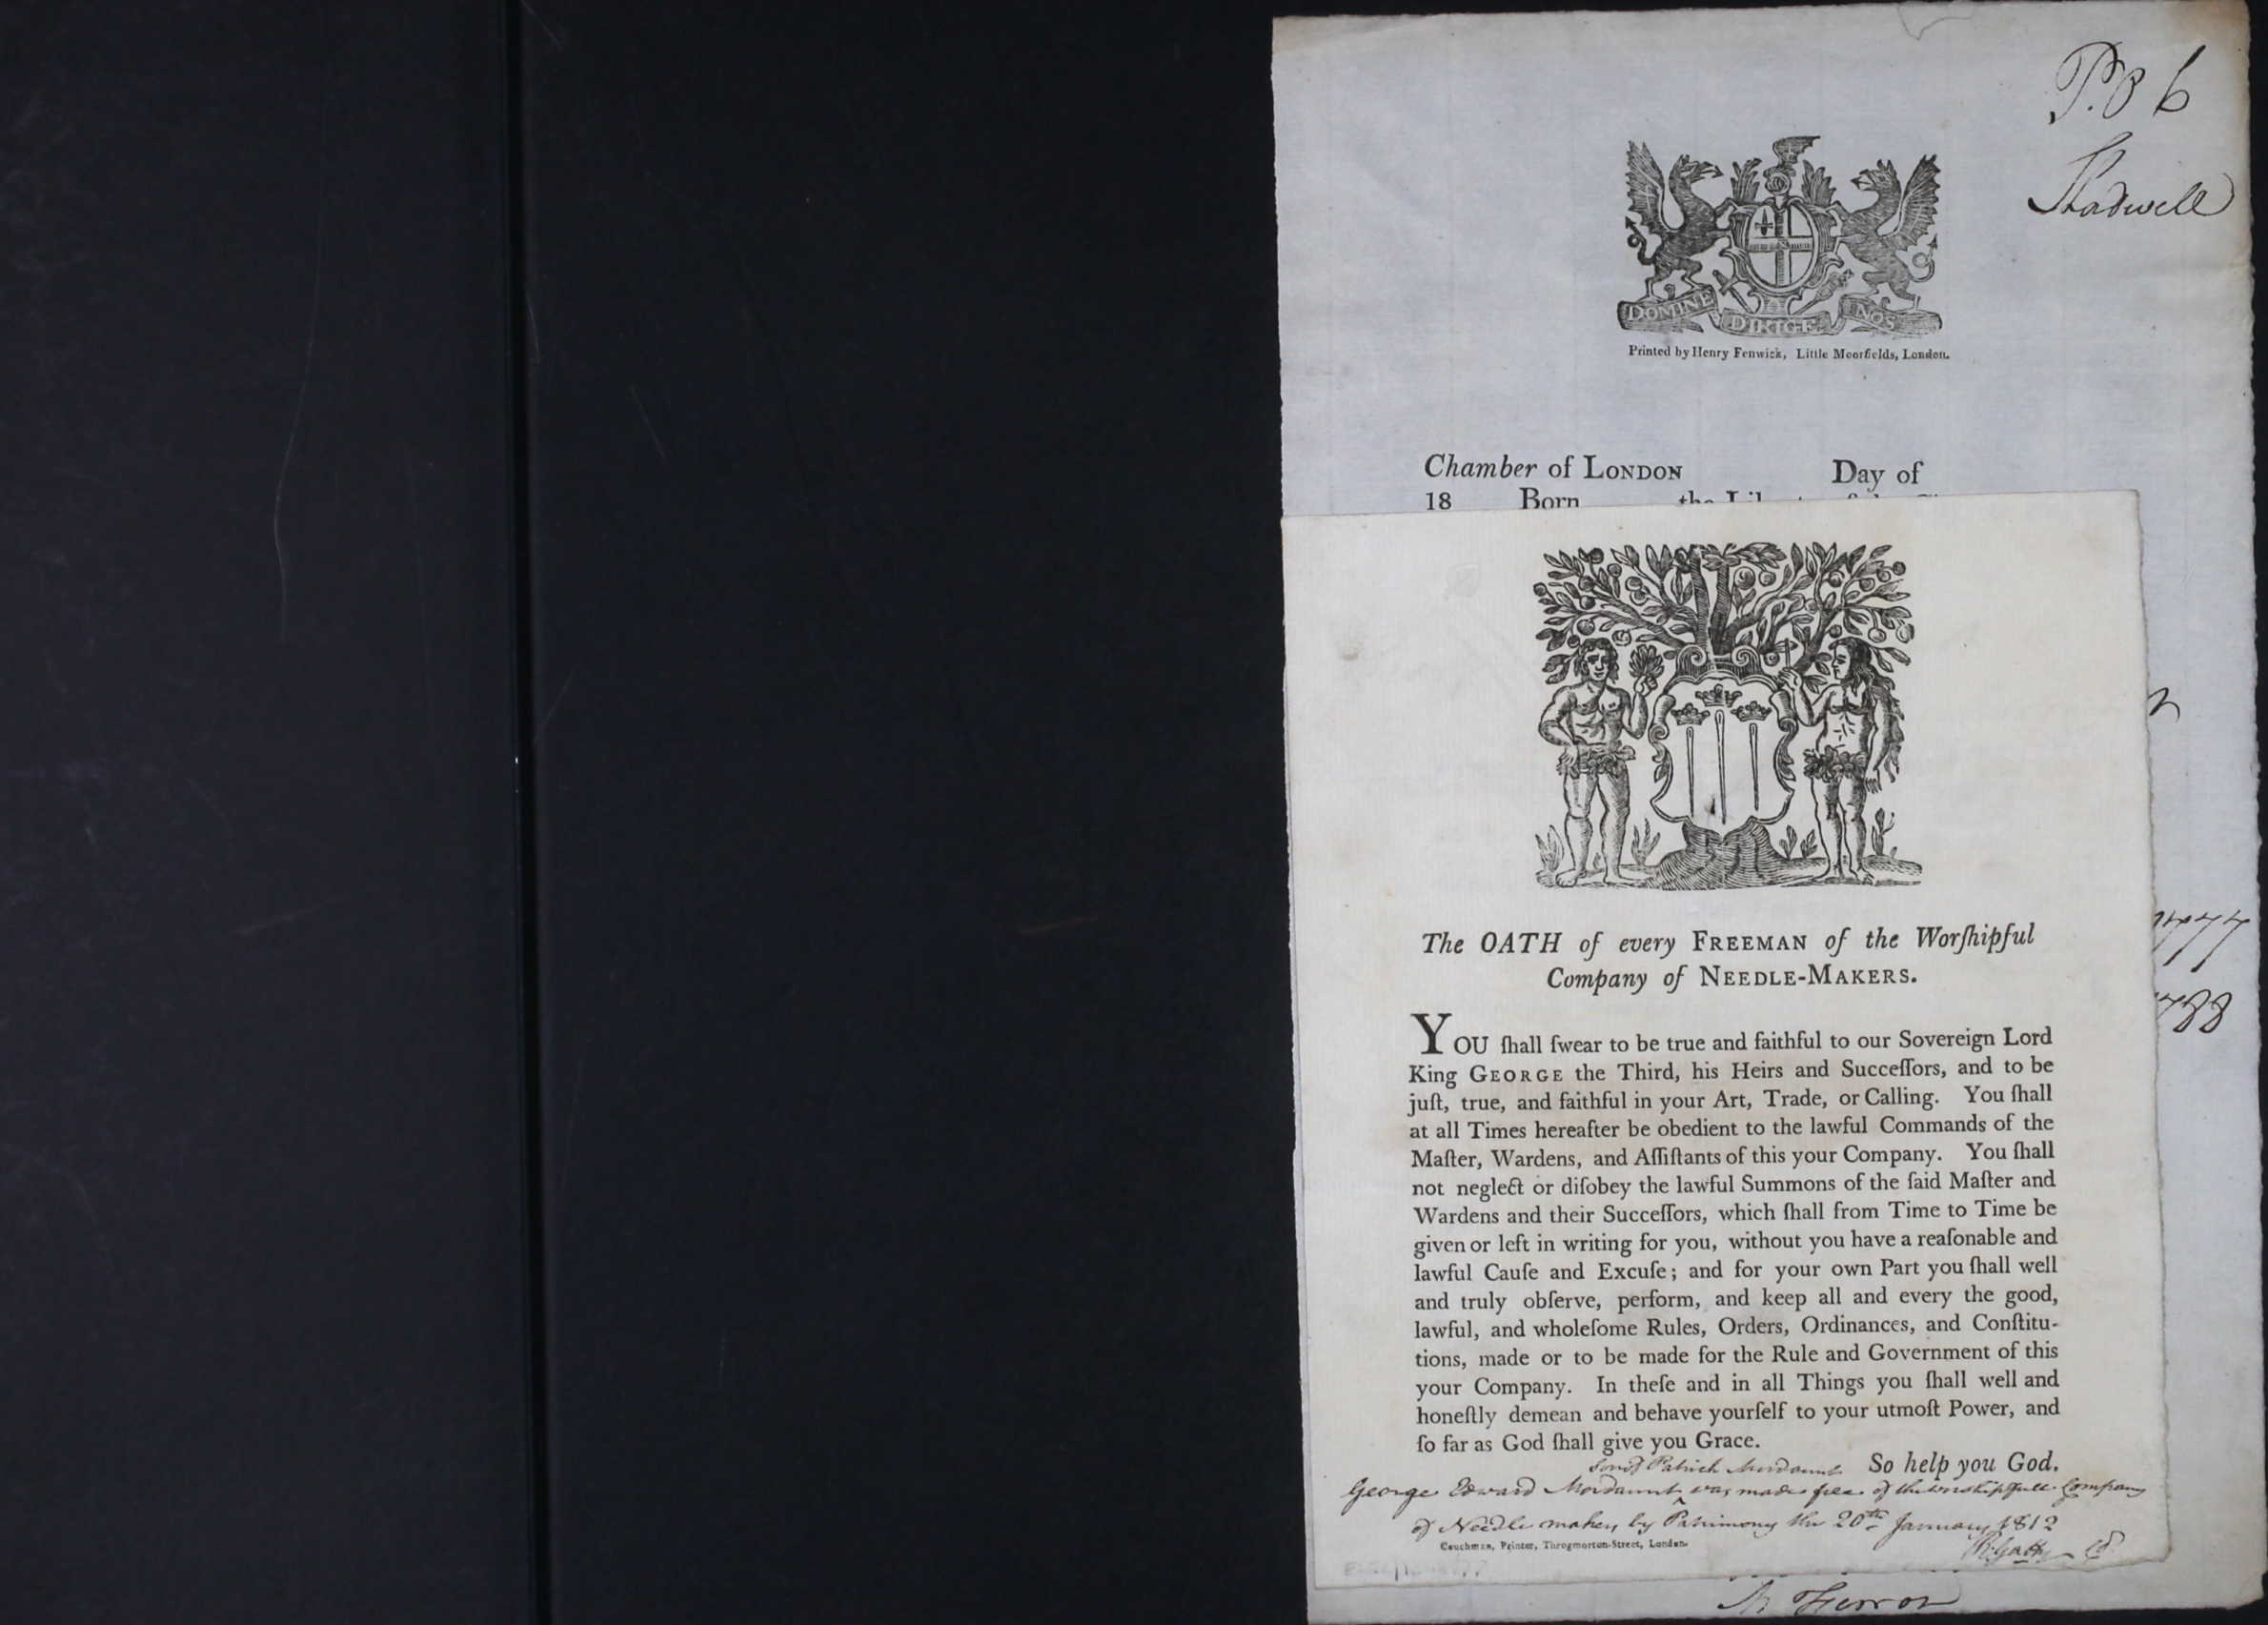 P.O 6
Shadwell
DOMINE DIRIGE NOS
Printed by Henry Fenwick, Little Moorfields, London.
Chamber of LONDON Day of
18 Born the
The OATH of every FREEMAN of the Worſhipful
Company of NEEDLE-MAKERS.
YOU ſhall ſwear to be true and faithful to our Sovereign Lord
King GEORGE the Third, his Heirs and Succeſſors, and to be
juſt, true, and faithful in your Art, Trade, or Calling. You ſhall
at all Times hereafter be obedient to the lawful Commands of the
Maſter, Wardens, and Aſſiſtants of this your Company. You ſhall
not neglect or diſobey the lawful Summons of the ſaid Maſter and
Wardens and their Succeſſors, which ſhall from Time to Time be
given or left in writing for you, without you have a reaſonable and
lawful Cauſe and Excuſe; and for your own Part you ſhall well
and truly obſerve, perform, and keep all and every the good,
lawful, and wholeſome Rules, Orders, Ordinances, and Conſtitu-
tions, made or to be made for the Rule and Government of this
your Company. In theſe and in all Things you ſhall well and
honeſtly demean and behave yourſelf to your utmoſt Power, and
ſo far as God ſhall give you Grace.
So help you God.
son of Patrick Mordaunt
George Edward Mordaunt ^ was made free of the worshipfull Company
of Needle makers by Patrimony the 20th January 1812
Couchman, Printer, Throgmorton-Street, London.